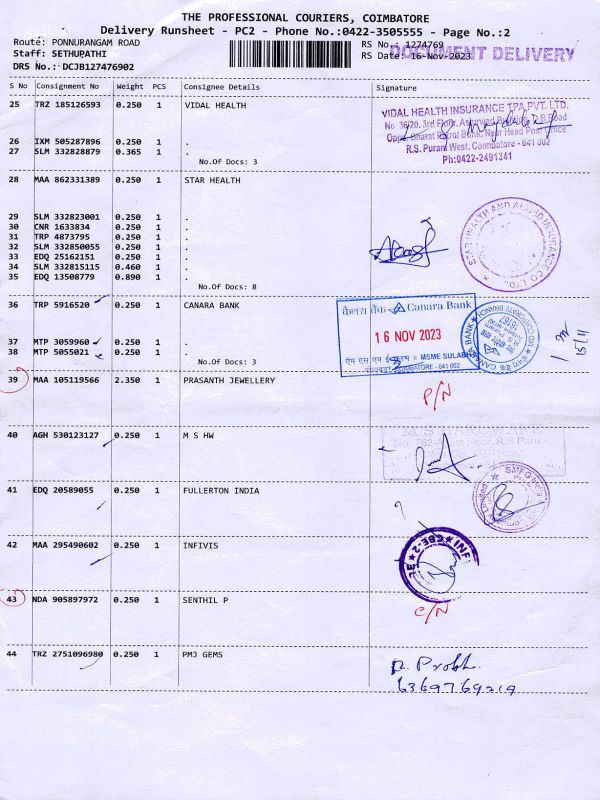 THE PROFESSIONAL COURIERS, COIMBATORE
Delivery Runsheet - PC2 - Phone No.:0422-3505555 - Page No.:2
Route: PONNURANGAM ROAD RS No.: 1274769
Staff: SETHUPATHI RS Date: 16-Nov-2023
DOCUMENT DELIVERY
DRS No.: DCJB127476902
S No Consignment No Weight PCS Consignee Details Signature
25 TRZ 185126593 0.250 1 VIDAL HEALTH
VIDAL HEALTH INSURANCE TPA PVT. LTD.
No 36/20, 3rd Floor,
Bharat Petrol Bunk, Near Head Post Office
R.S. Puram West, Coimbatore - 641 002
Ph:0422-2491341
26 IXM 505287896 0.250 1 .
27 SLM 332828879 0.365 1 .
No.Of Docs: 3
28 MAA 862331389 0.250 1 STAR HEALTH
STAR HEALTH AND ALLIED INSURANCE CO LTD.
29 SLM 332823001 0.250 1 .
30 CNR 1633834 0.250 1 .
31 TRP 4873795 0.250 1 .
32 SLM 332850055 0.250 1 .
33 EDQ 25162151 0.250 1 .
34 SLM 332815115 0.460 1 .
35 EDQ 13508779 0.890 1 .
No.Of Docs: 8
36 TRP 5916520 0.250 1 CANARA BANK
केनरा बैंक Canara Bank
16 NOV 2023
MSME SULABH
COIMBATORE - 641 002
CANARA BANK
37 MTP 3059960 0.250 1 .
38 MTP 5055021 0.250 1 .
No.Of Docs: 3
15/11
39 MAA 105119566 2.350 1 PRASANTH JEWELLERY
P/N
40 AGH 530123127 0.250 1 M S HW
M.S HARDWARE
Floor, R.S Puram
41 EDQ 20589055 0.250 1 FULLERTON INDIA
SMFG India
42 MAA 295490602 0.250 1 INFIVIS
CBE-2
43 NDA 905897972 0.250 1 SENTHIL P
C/N
44 TRZ 2751096980 0.250 1 PMJ GEMS
6369769219